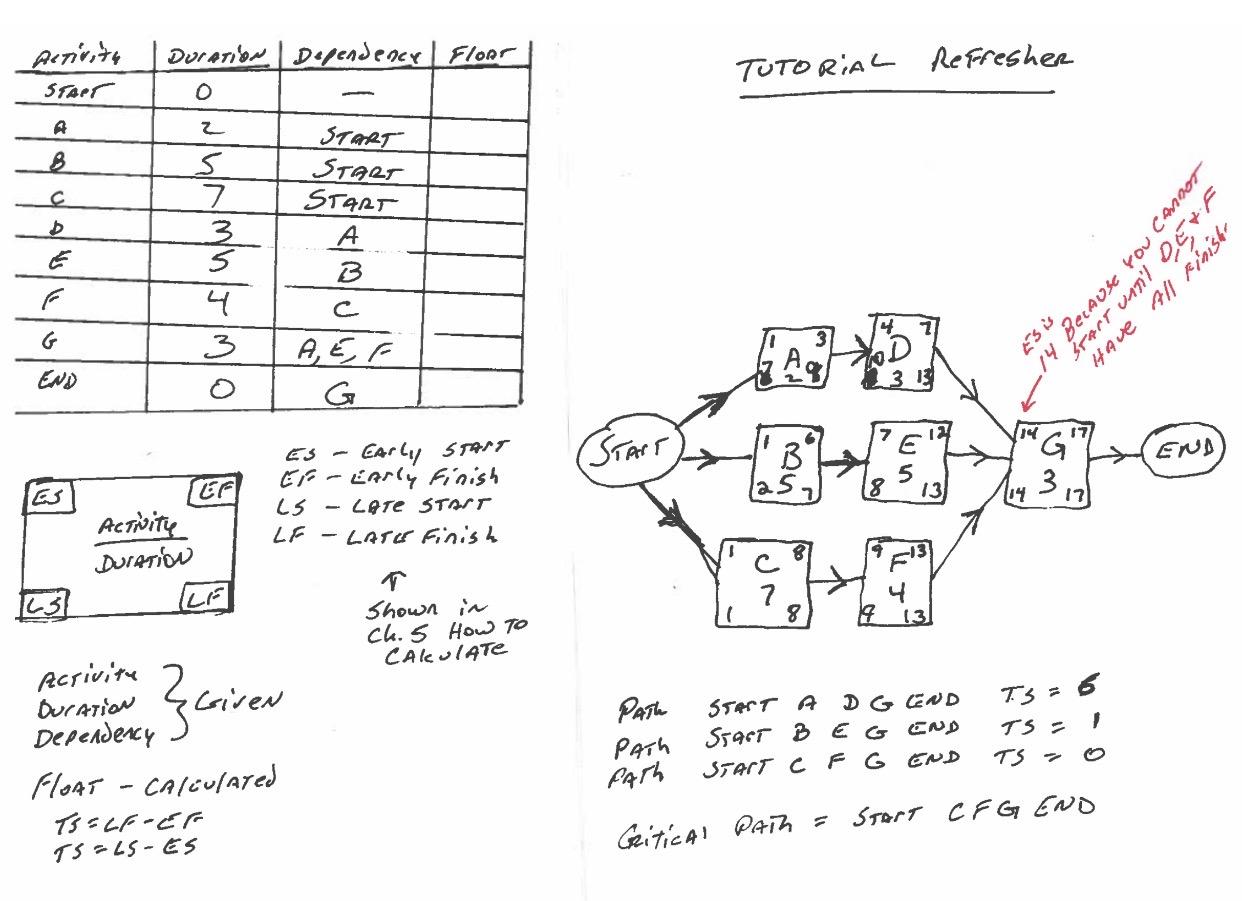 Activity Duration Dependency Float
START 0 —
A 2 START
B 5 START
C 7 START
D 3 A
E 5 B
F 4 C
G 3 A, E, F
END 0 G
ES EF
Activity
Duration
LS LF
ES - Early Start
EF - Early Finish
LS - Late Start
LF - Late Finish
↑
Shown in
Ch. 5 How To
Calculate
Activity
Duration } Given
Dependency
Float - Calculated
TS = LF - EF
TS = LS - ES
TUTORIAL Refresher
ES is
14 Because you cannot
start until D, E, & F
have all finish
START
1 3
A
7 2
4 7
D
10 3 13
1 6
B
2 5 7
7 12
E
5
8 13
1 8
C
7
1 8
9 13
F
4
9 13
14 G 17
14 3 17
END
Path START A D G END TS = 6
Path START B E G END TS = 1
Path START C F G END TS = 0
Critical Path = START C F G END